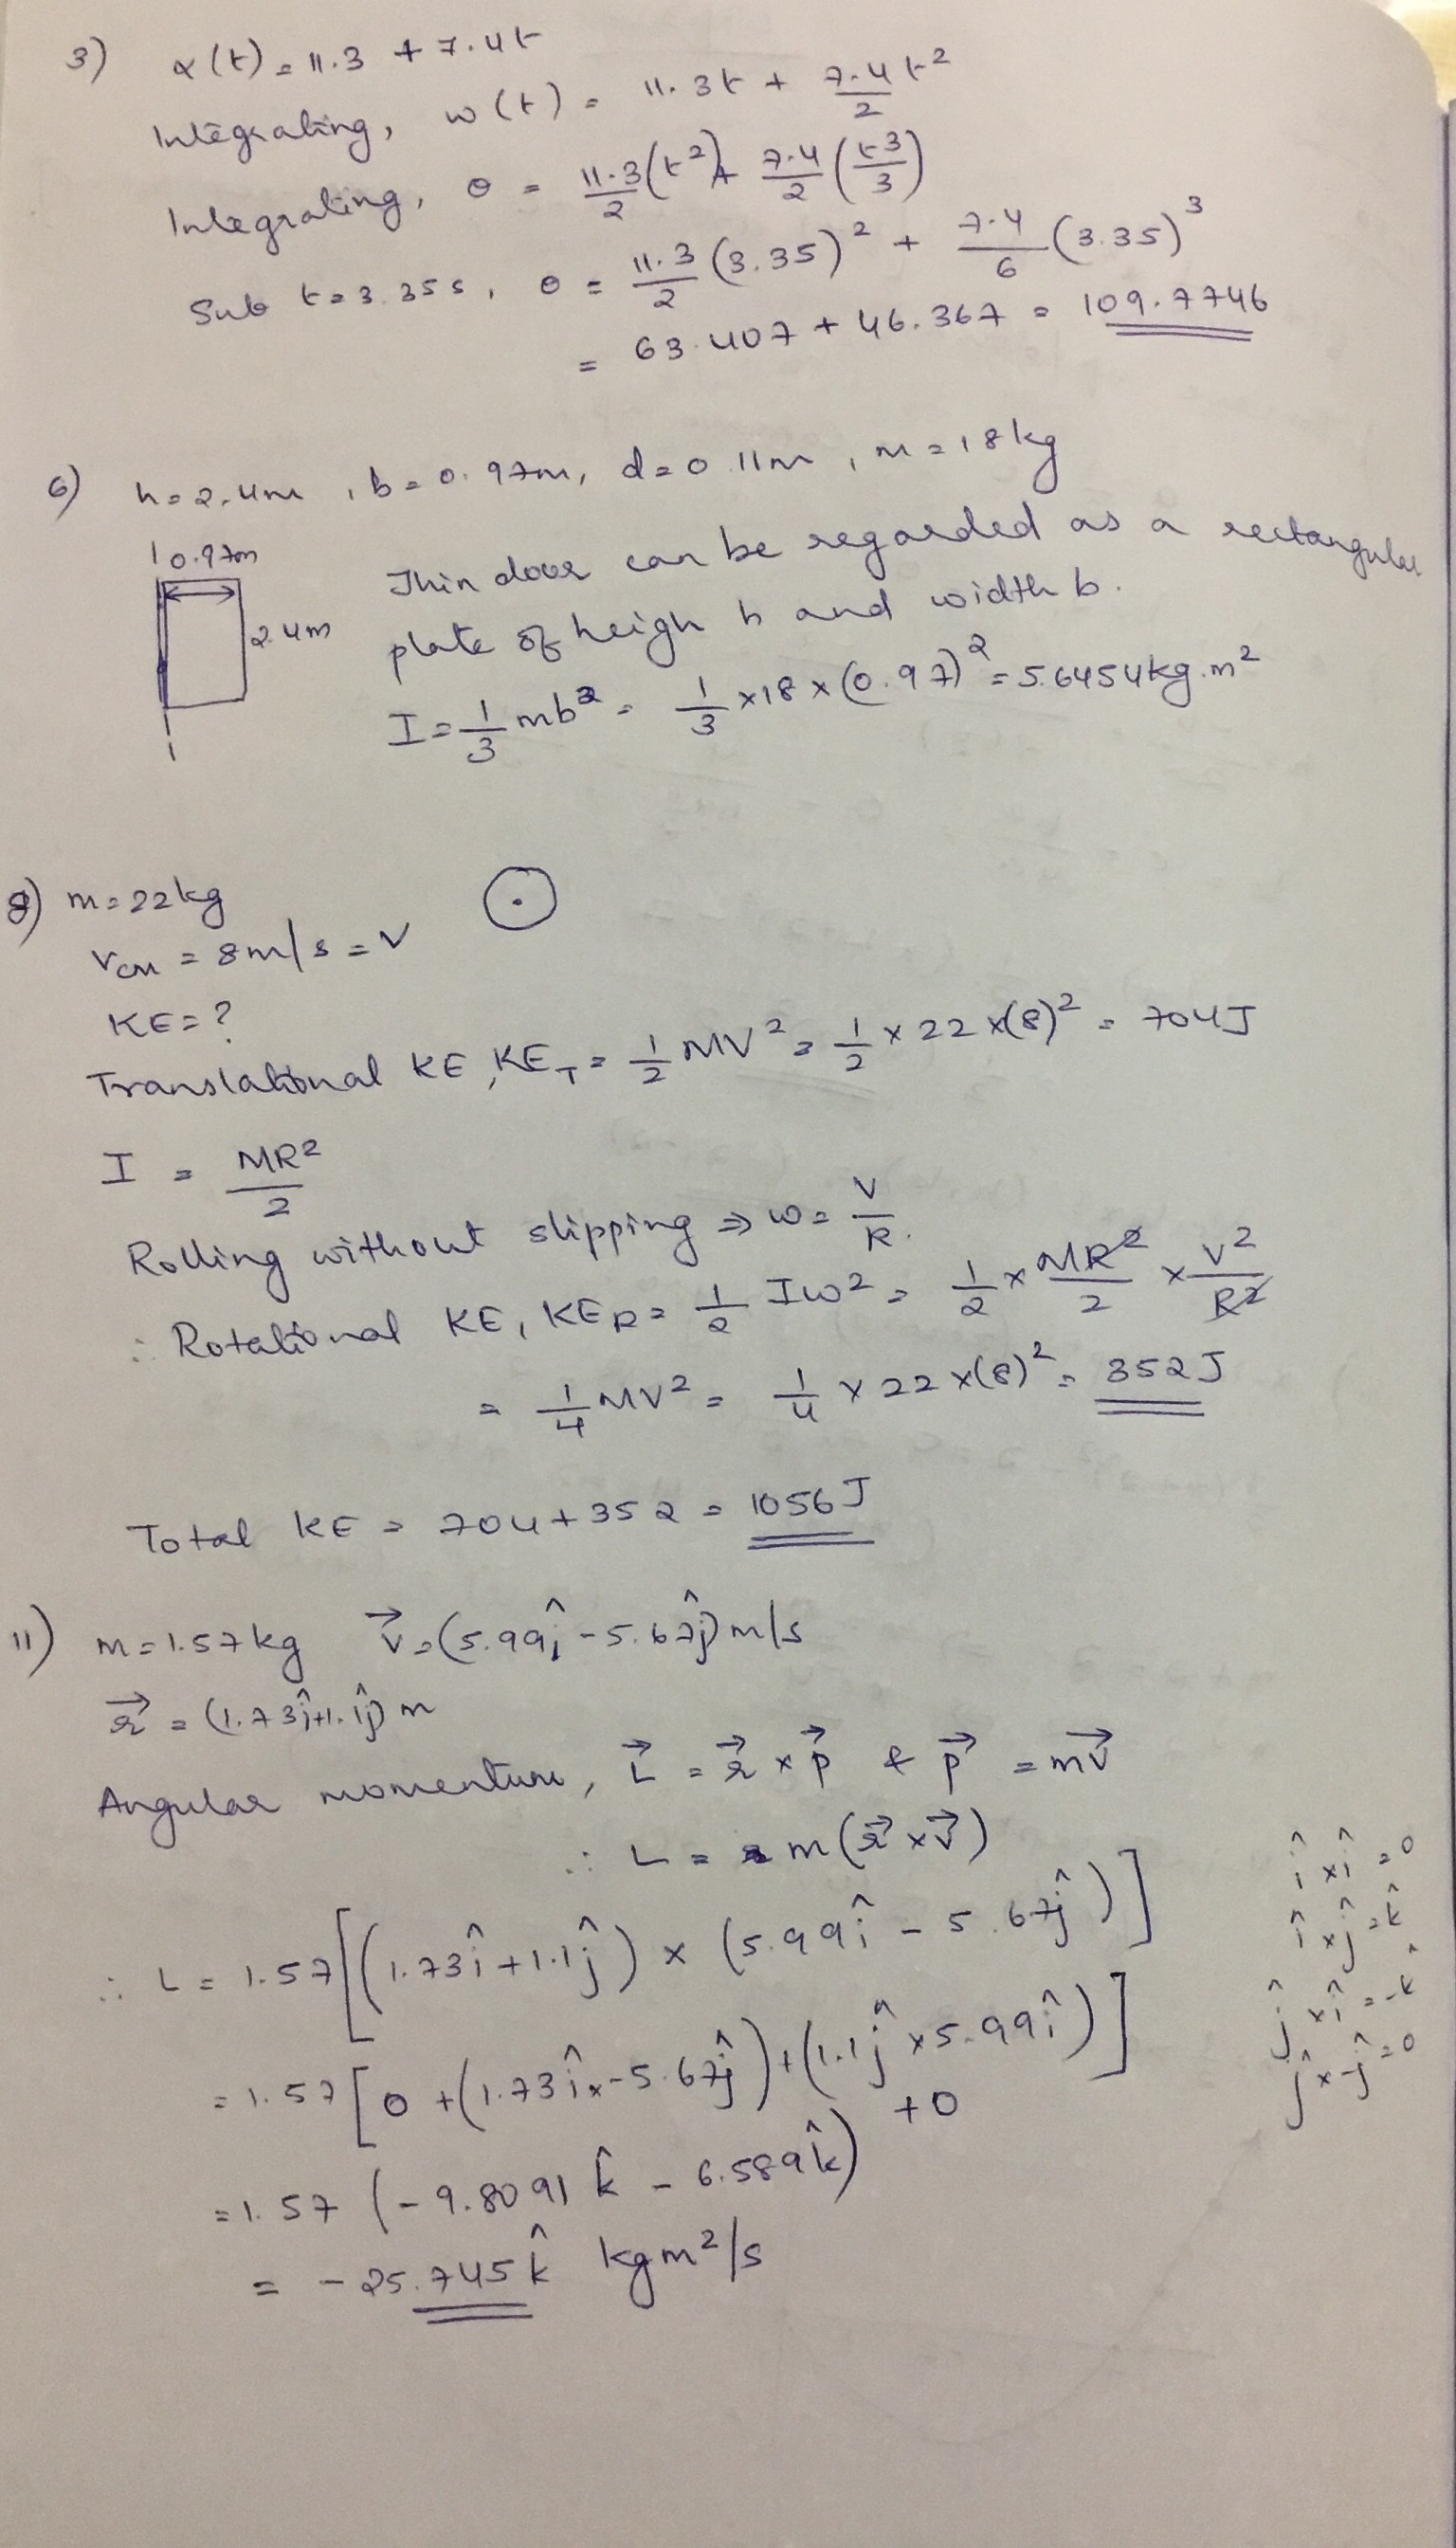 3) α(t) = 11.3 + 7.4t
Integrating, w(t) = 11.3t + 7.4/2 t²
Integrating, θ = 11.3/2 (t²) + 7.4/2 (t³/3)
Sub t = 3.35s, θ = 11.3/2 (3.35)² + 7.4/6 (3.35)³
= 63.407 + 46.367 = 109.7746
6) h = 2.4m, b = 0.97m, d = 0.11m, m = 18kg
0.97m
2.4m
Thin door can be regarded as a rectangular
plate of heigh h and width b.
I = 1/3 mb² = 1/3 × 18 × (0.97)² = 5.6454 kg.m²
8) m = 22kg
Vcm = 8m/s = V
KE = ?
Translational KE, KE_T = 1/2 MV² = 1/2 × 22 × (8)² = 704J
I = MR²/2
Rolling without slipping ⇒ ω = V/R.
∴ Rotational KE, KE_R = 1/2 Iω² = 1/2 × MR²/2 × V²/R²
= 1/4 MV² = 1/4 × 22 × (8)² = 352J
Total KE = 704 + 352 = 1056J
11) m = 1.57kg v⃗ = (5.99î - 5.67ĵ) m/s
r⃗ = (1.73î + 1.1ĵ) m
Angular momentum, L⃗ = r⃗ × p⃗ & p⃗ = mv⃗
∴ L = m(r⃗ × v⃗)
∴ L = 1.57[(1.73î + 1.1ĵ) × (5.99î - 5.67ĵ)]
= 1.57[0 + (1.73î × -5.67ĵ) + (1.1ĵ × 5.99î)]
+0
= 1.57 (-9.8091 k̂ - 6.589k̂)
= -25.745k̂ kgm²/s
î × î = 0
î × ĵ = k̂
ĵ × î = -k̂
ĵ × ĵ = 0